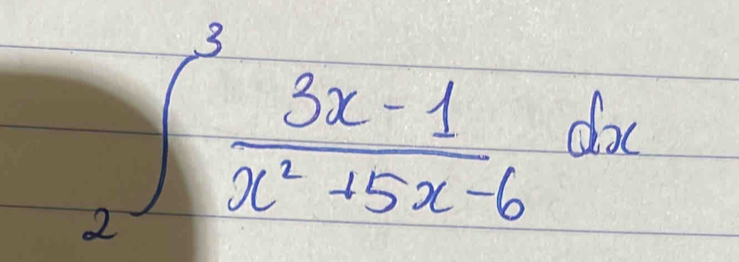 ∫₂³ (3x - 1)/(x² + 5x - 6) dx